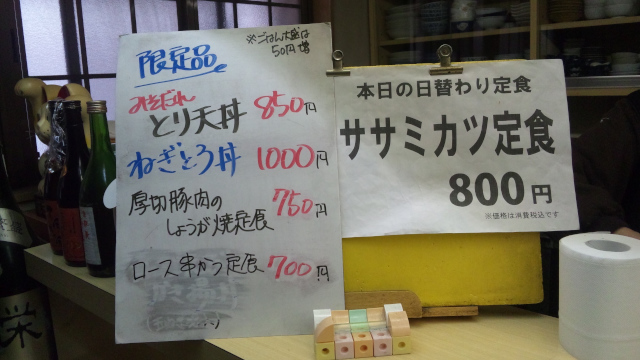 限定品
※ごはん大盛は
50円増
みそだれ
とり天丼 850円
ねぎとろ丼 1000円
厚切豚肉の
しょうが焼定食 750円
ロース串かつ定食 700円
本日の日替わり定食
ササミカツ定食
800円
※価格は消費税込です
栄